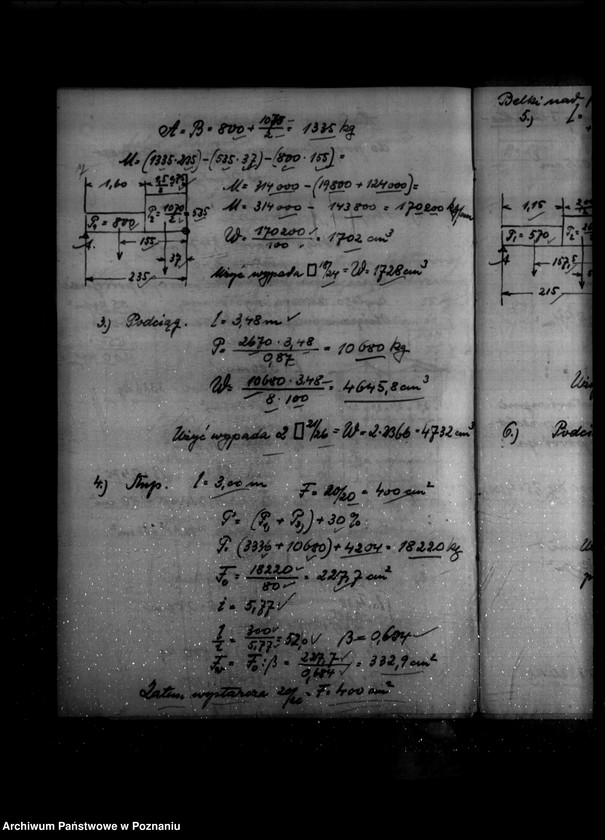 A = B = 800 + 1070/2 = 1335 kg
M = (1335·235) - (535·37) - (800·155) =
M = 314000 - (19800 + 124000) =
M = 314000 - 143800 = 170200 kg/cm
W = 170200/100 = 1702 cm³
Użyć wypada □ 18/24 = W = 1728 cm³
1,60
P1 = 800
P2 = 1070/2 = 535
A
155
37
235
3.) Podciąg. l = 3,48 m
P = 2670 · 3,48/0,87 = 10680 kg
W = 10680 · 348/8 · 100 = 4645,8 cm³
Użyć wypada 2 □ 21/26 = W = 2·2366 = 4732 cm³
4.) Słup. l = 3,00 m F = 20/20 = 400 cm²
P = (P1 + P3) + 30%
P = (3336 + 10680) + 4204 = 18220 kg
Fo = 18220/80 = 227,7 cm²
i = 5,77
l/i = 300/5,77 = 52,0 β = 0,684
Fw = Fo : β = 227,7/0,684 = 332,9 cm²
Zatem wystarcza 20/20 = F = 400 cm²
Belki nad
5.) l =
1,15
P1 = 570
P2 =
A
157,5
215
6.) Podci
Archiwum Państwowe w Poznaniu